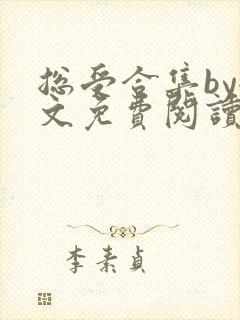 总受合集by
文免費閱讀
李素貞